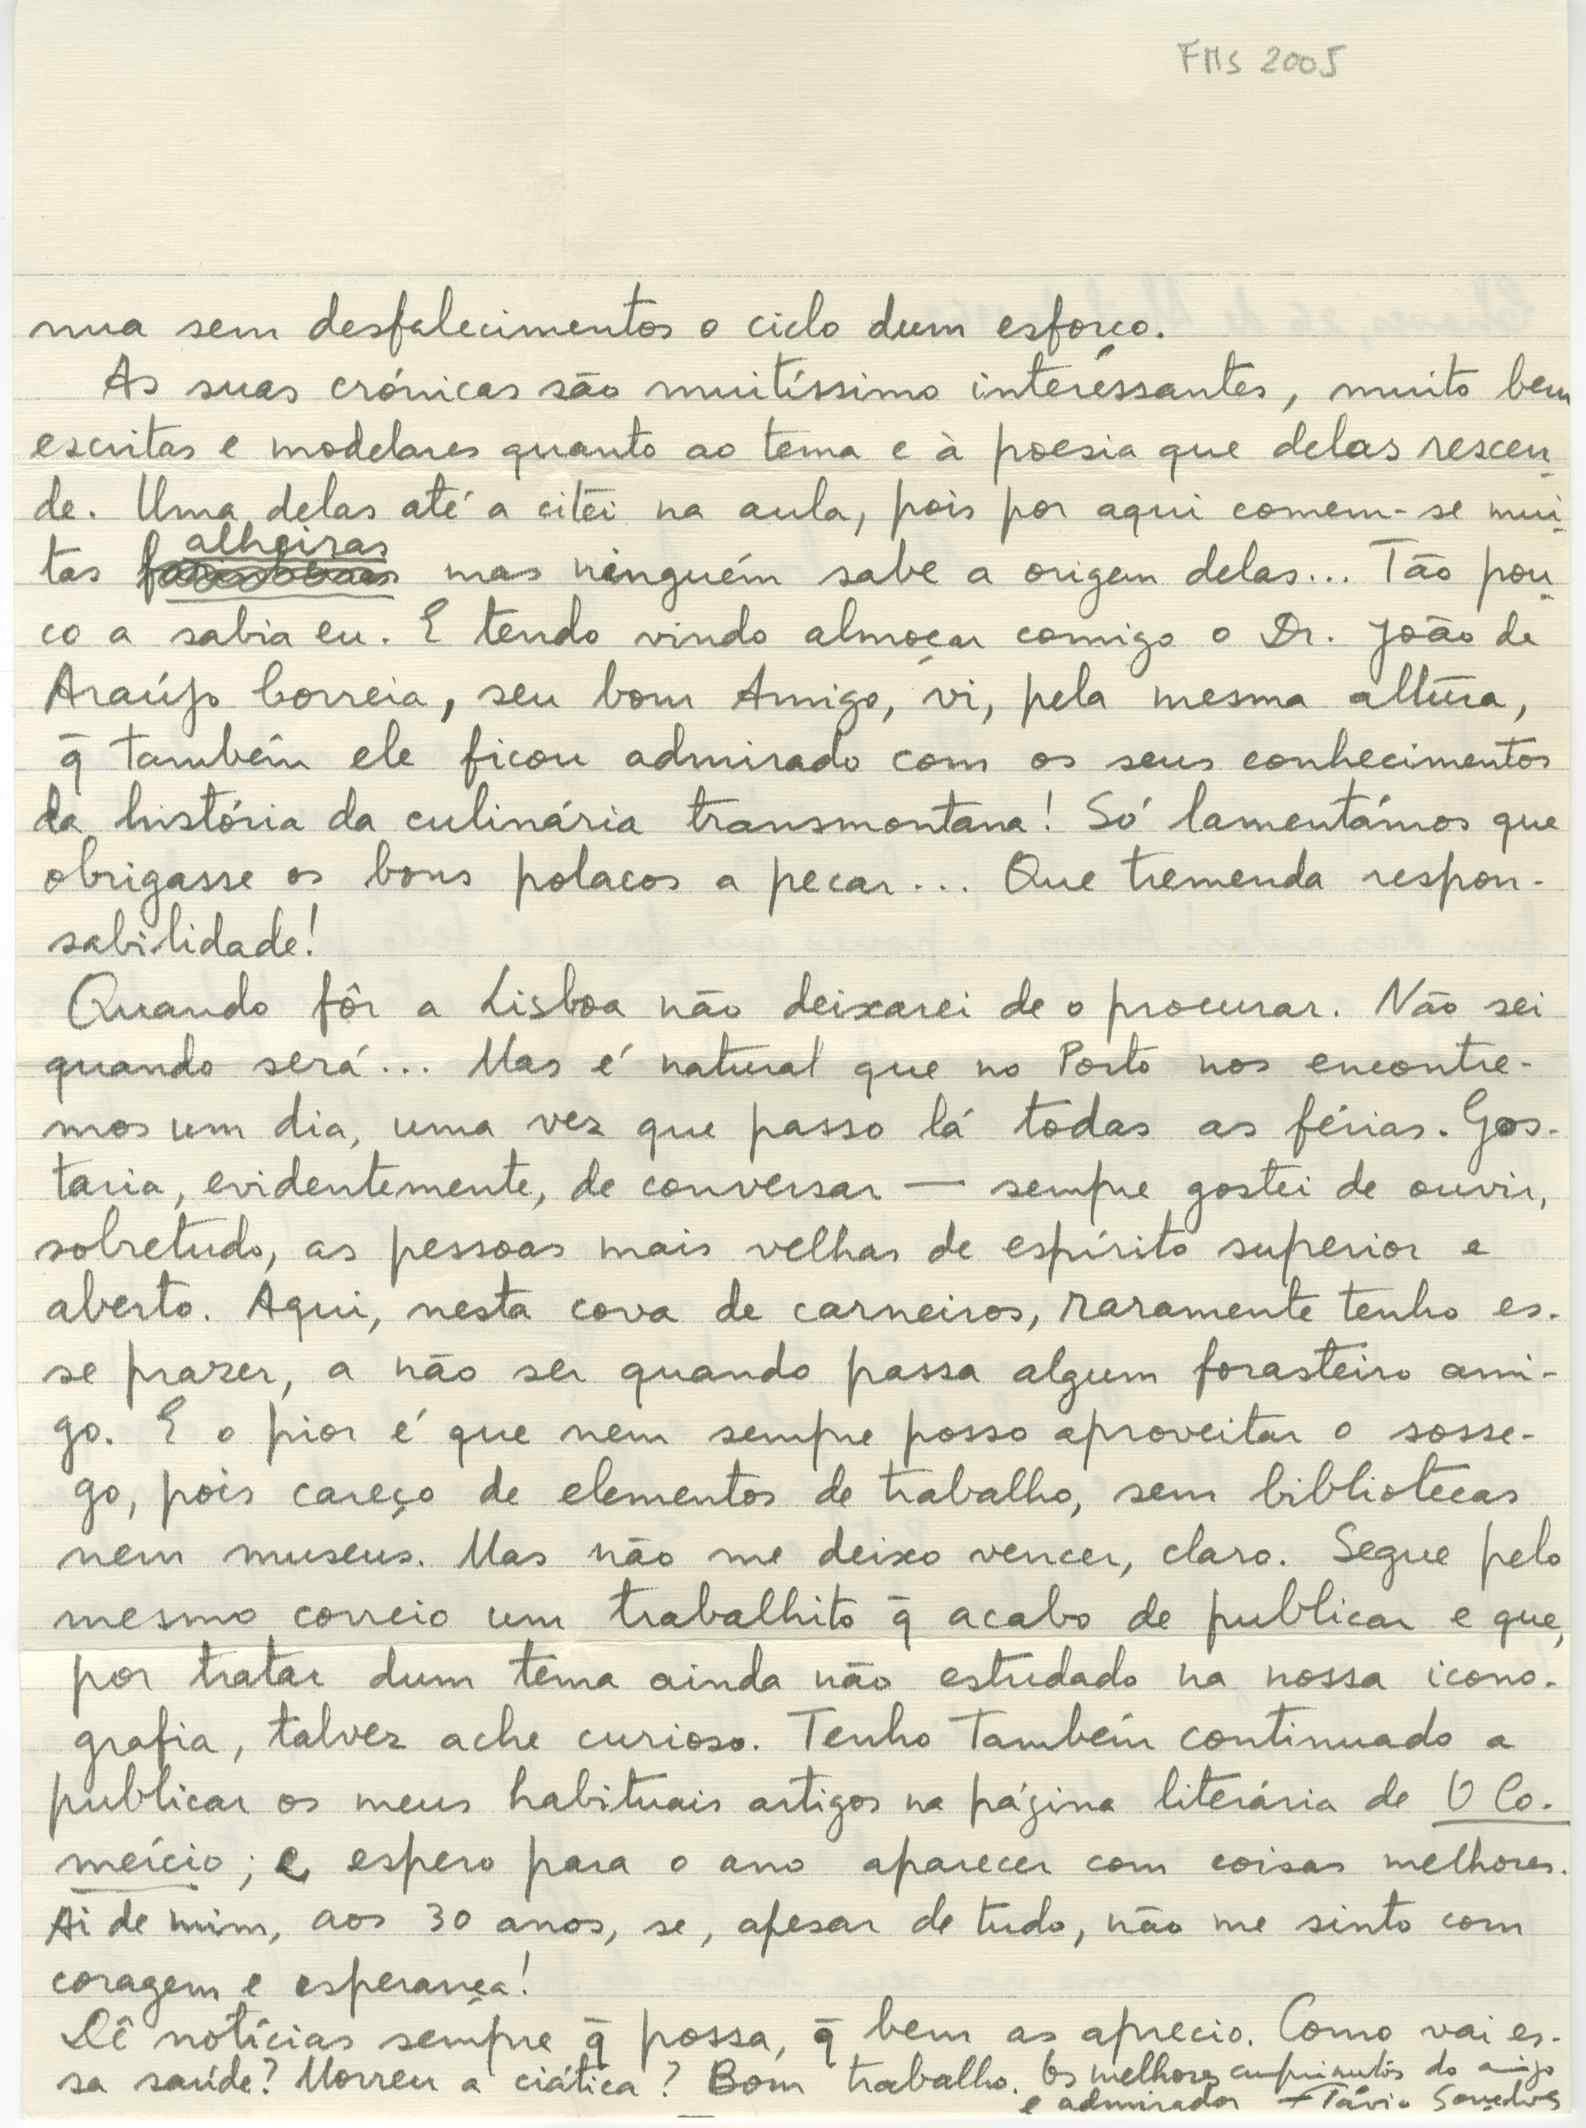 FMS 2005
nua sem desfalecimentos o ciclo dum esforço.
As suas crónicas são muitíssimo interessantes, muito bem
escritas e modelares quanto ao tema e à poesia que delas rescen-
de. Uma delas até a citei na aula, pois por aqui comem-se mui-
tas alheiras mas ninguém sabe a origem delas... Tão pou-
co a sabia eu. E tendo vindo almoçar comigo o Dr. João de
Araújo Correia, seu bom Amigo, vi, pela mesma altura,
q̄ também ele ficou admirado com os seus conhecimentos
da história da culinária transmontana! Só lamentámos que
obrigasse os bons polacos a pecar... Que tremenda respon-
sabilidade!
Quando fôr a Lisboa não deixarei de o procurar. Não sei
quando será... Mas é natural que no Porto nos encontre-
mos um dia, uma vez que passo lá todas as férias. Gos-
taria, evidentemente, de conversar — sempre gostei de ouvir,
sobretudo, as pessoas mais velhas de espírito superior e
aberto. Aqui, nesta cova de carneiros, raramente tenho es-
se prazer, a não ser quando passa algum forasteiro ami-
go. E o pior é que nem sempre posso aproveitar o sosse-
go, pois careço de elementos de trabalho, sem bibliotecas
nem museus. Mas não me deixo vencer, claro. Segue pelo
mesmo correio um trabalhito q̄ acabo de publicar e que,
por tratar dum tema ainda não estudado na nossa icono-
grafia, talvez ache curioso. Tenho também continuado a
publicar os meus habituais artigos na página literária de O Co-
mércio; e espero para o ano aparecer com coisas melhores.
Ai de mim, aos 30 anos, se, apesar de tudo, não me sinto com
coragem e esperança!
Dê notícias sempre q̄ possa, q̄ bem as aprecio. Como vai es-
sa saúde? Morreu a ciática? Bom trabalho. Os melhores cumprimentos do amigo
e admirador Flávio Gonçalves